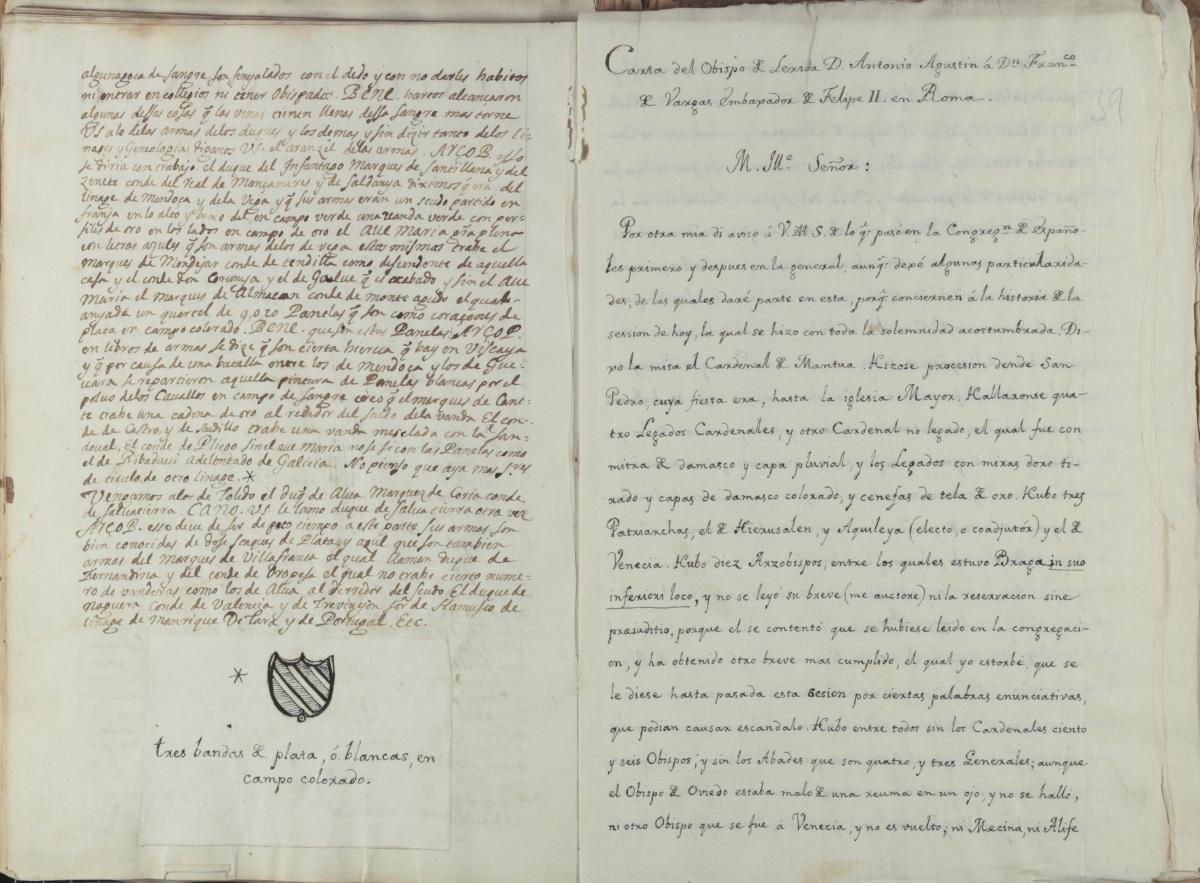 alguna goca de sangre son senyalados con el dedo y con no darles habitos
ni entrar en collegios ni tener Obispados. BENE. hartos alcançaron
algunas dessas cosas q̃ las venas tienen llenas dessa sangre mas torne
VS. a lo de las armas de los duques y los demas y sin dezir tanto de los li-
nages y Geneologia diganos VS. el aranzel de las armas. AYCOB. esso
se diria con trabajo. el duque del Infantago Marques de Santillana y del
zenete conde del Real de Mançanares y de Saldanya diximos q̃ era del
linage de Mendoça y de la Vega y q̃ sus armas eran un scudo partido en
franja en lo alto y baxo del en campo verde una vanda verde con per-
files de oro en los lados en campo de oro el AUE MARIA
con letras azules q̃ son armas de los de vega estas mismas trahe el
marques de Mondejar conde de tendilla como descendente de aquella
casa y el conde don Corunya y el de Gaelue q̃ es acabado y sin el Aue
Maria el marques de Almaçan conde de monte agudo el qual
anyade un quartel de Panelas q̃ son como coraçones de
plata en campo colorado. BENE. que son estas Panelas AYCOP.
en libros de armas se dize q̃ son cierta hierva q̃ hay en Viscaya
y q̃ por causa de una batalla entre los de mendoça y los de Gue-
vara se repartieron aquella pintura de Panelas blancas por el
polvo de los Cavallos en campo de sangre creo q̃ el marques de Cane-
te trahe una cadena de oro al rededor del scudo de la vanda El con-
de de Castro, y de Saudillo trahe una vanda mesclada con la San-
doual, El conde de Pliego sin el aue maria no se si con las Panelas como
el de Ribadaui Adelantado de Galicia. No pienso que aya mas Sres
de titulo de otro linage. *
Vengamos a los de Toledo el duq̃ de Alua Marquez de Coria conde
de Saluatierra. CANO. VS. le llamo duque de Salua tierra otra vez
AYCOB. esso deve de ser de poco tiempo a este parte sus armas son
bien conocidas de dose scaques de Plata y azul que son tambien
armas del Marques de Villafranca el qual llaman duque de
Fernandina y del conde de Oropesa el qual no trahe cierto nume-
ro de vanderas como los de Alua al derridor del scudo El duque de
naguera conde de Valencia y de Trevinyon sor. de Ramusco de
linage de Manrrique De Lara y de Portugal. Etc.
*
tres bandas de plata, ó blancas, en
campo colorado.
Carta del Obispo de Lerida D. Antonio Agustin á Dn. Franco.
de Vargas Embaxador de Felipe II. en Roma.
39
M. Illa. Señor:
Por otra mia di aviso á V. M. S. de lo q̃. pasó en la Congregn. de Españo-
les primero y despues en la general, aunq̃. dexé algunas particularida-
des, de las quales daré parte en esta, porq̃. conciernen á la historia de la
session de hoy, la qual se hizo con toda la solemnidad acostumbrada. Di-
xo la misa el Cardenal de Mantua. Hizose procesion dende San
Pedro, cuya fiesta era, hasta la iglesia Mayor. Hallaronse qua-
tro Legados Cardenales, y otro Cardenal no legado, el qual fue con
mitra de damasco y capa pluvial, y los Legados con mitras doro ti-
rado y capas de damasco colorado, y cenefas de tela de oro. Hubo tres
Patriarchas, el de Hierusálen, y Aquileya (electo, o coadjutór) y el de
Venecia. Hubo diez Arzobispos, entre los quales estuvo Braga in suo
inferiori loco, y no se leyó su breve (me auctore) ni la reservacion sine
præjuditio, porque el se contentó que se hubiese leido en la congregaci-
on, y ha obtenido otro breve mas cumplido, el qual yo estorbé, que se
le diese hasta pasada esta sesion por ciertas palabras enunciativas,
que podian causar escandalo. Hubo entre todos sin los Cardenales ciento
y seis Obispos; y sin los Abades que son quatro, y tres Generales; aunque
el Obispo de Oviedo estaba malo de una reuma en un ojo, y no se halló,
ni otro Obispo que se fue á Venecia, y no es vuelto; ni Mæcina, ni Alife